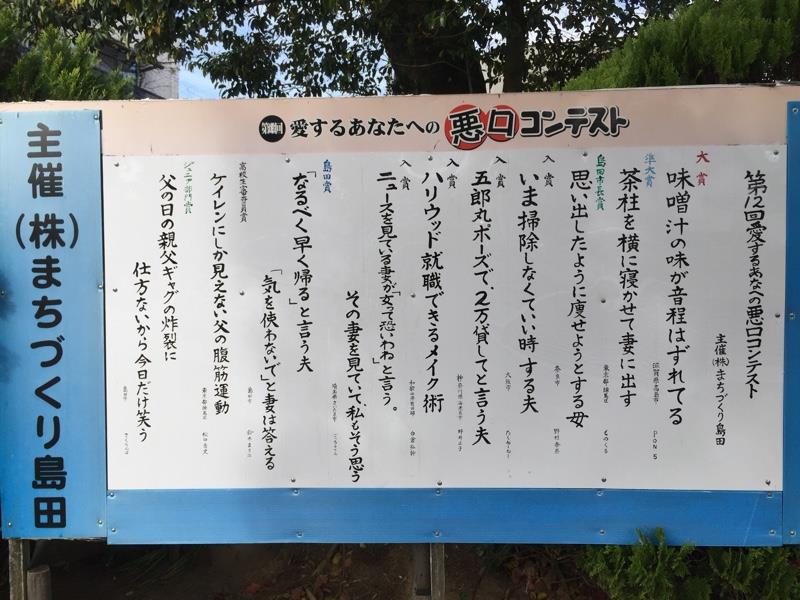 愛するあなたへの悪口コンテスト
第12回愛するあなたへの悪口コンテスト
主催(株)まちづくり島田
大賞
味噌汁の味が音程はずれてる
PON5
準大賞
茶柱を横に寝かせて妻に出す
東京都練馬区
ものくろ
島田市長賞
思い出したように痩せようとする母
奈良市
野村春奈
入賞
いま掃除しなくていい時する夫
大阪市
入賞
五郎丸ポーズで、2万貸してと言う夫
入賞
ハリウッド就職できるメイク術
入賞
ニュースを見ている妻が「女って恐いわね」と言う。
その妻を見ていて、私もそう思う
島田賞
「なるべく早く帰る」と言う夫
「気を使わないで」と妻は答える
島田市
鈴木まり子
高校生審査員賞
ケイレンにしか見えない父の腹筋運動
東京都練馬区
ジュニア部門賞
父の日の親父ギャグの炸裂に
仕方ないから今日だけ笑う
島田市
さくらんぼ
主催(株)まちづくり島田